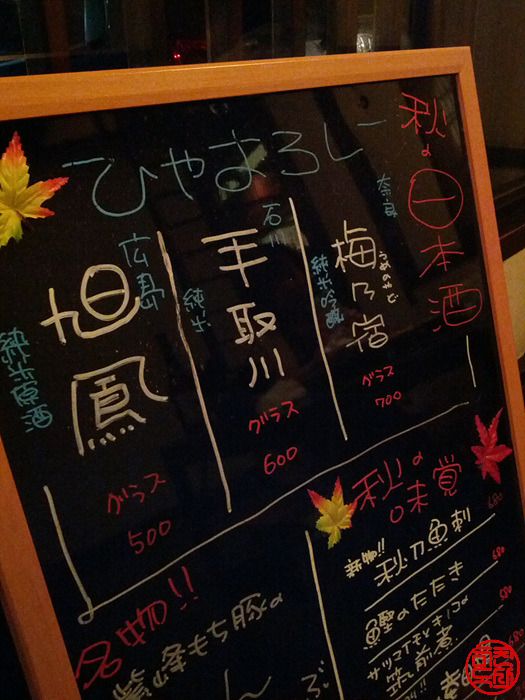 秋の一本酒
ひやおろし
奈良
梅乃宿
うめのやど
純米吟醸
グラス
700
石川
手取川
純米
グラス
600
広島
旭鳳
純米原酒
グラス
500
秋の
味覚
秋刀魚刺
680
鰹のたたき
680
サツマイモとキノコの
筑前煮
580
680
名物!!
もち豚の